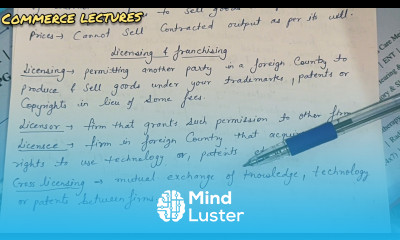 COMMERCE LECTURES
to sell goods
Prices → Cannot Sell Contracted output as per its will.
Licensing & franchising
Licensing → permitting another party in a foreign Country to
Produce & Sell goods under your trademarks, patents or
Copyrights in lieu of Some fees.
Licensor → firm that grants such permission to other firm
Licensee → firm in foreign Country that
rights to use technology or, patents
Cross licensing → mutual exchange of knowledge, technology
or patents between firms
Mind
Luster